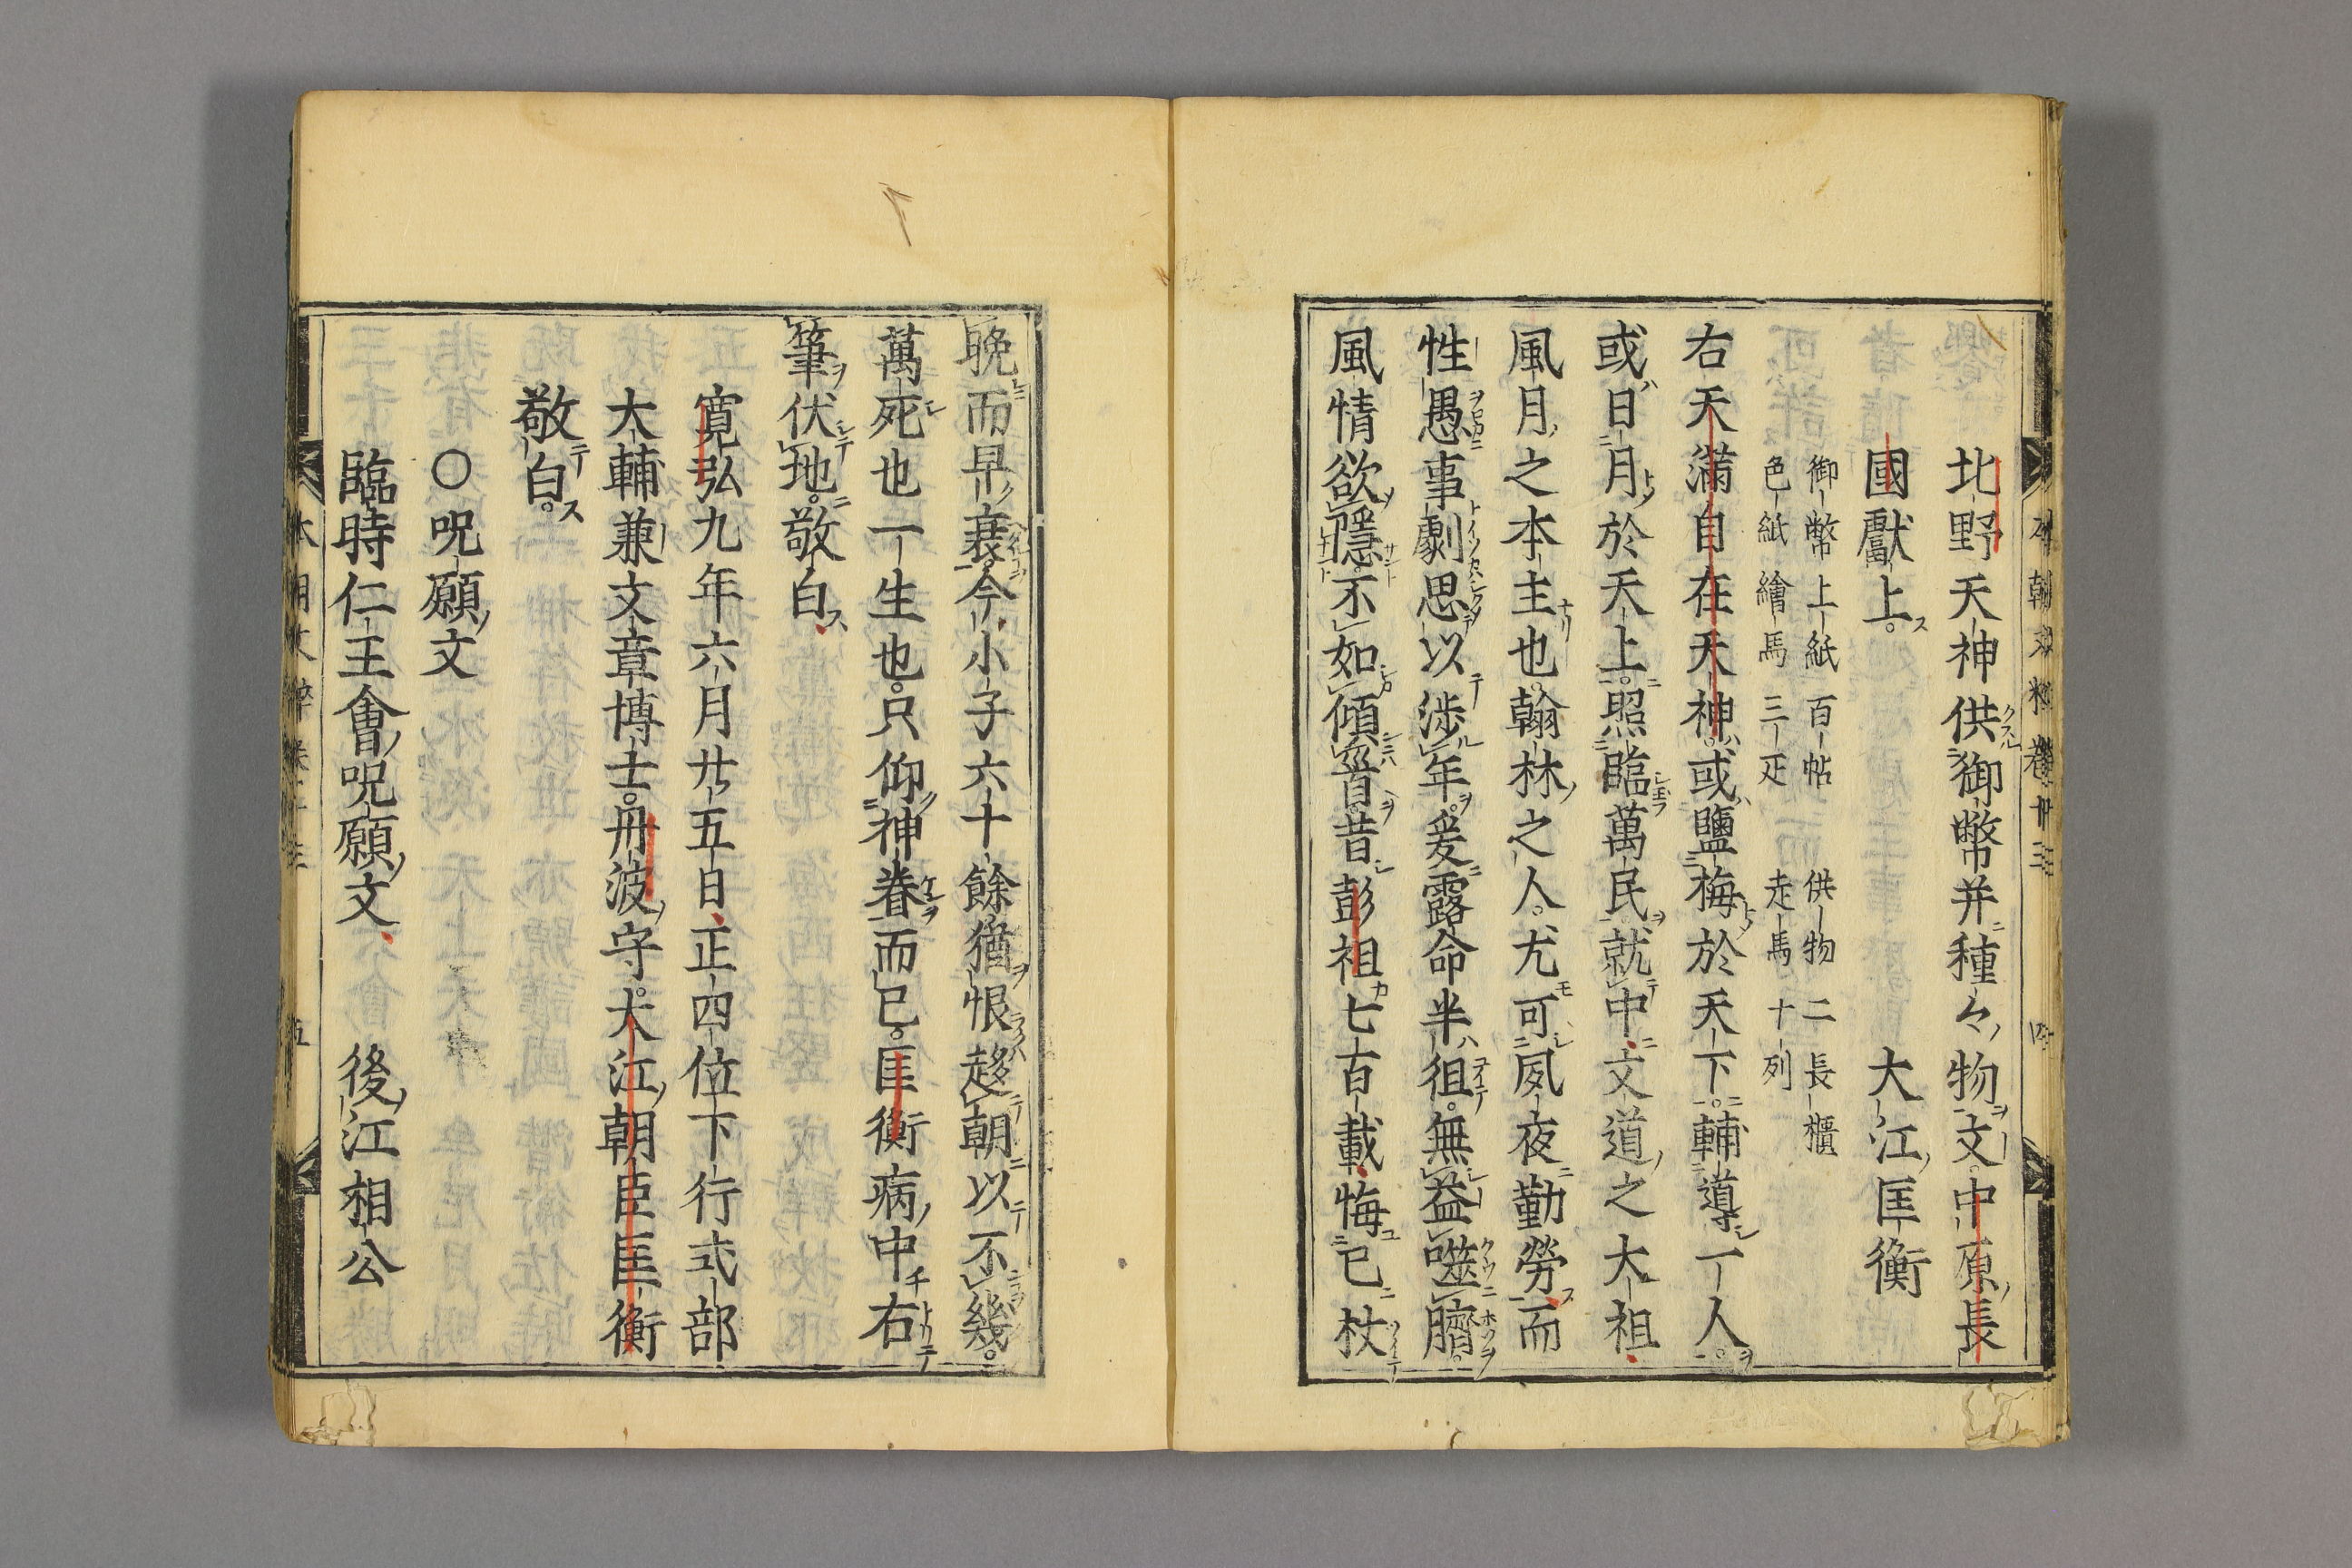 北野天神供御幣并種々物文。中原長
國獻上。　大江匡衡
御幣上紙百帖　供物二長櫃
色紙繪馬三疋　走馬十列
右天滿自在天神。或鹽梅於天下。輔導一人。
或日月於天上。照臨萬民。就中文道之大祖
風月之本主也。翰林之人。尤可夙夜勤勞。而
性愚事劇思以渉年。爰露命半徂。無益噬臍。
風情欲隱。不如傾首。昔彭祖七百載。悔已杖
晩而早衰。今小子六十餘。猶恨趍朝以不幾。
萬死也一生也。只仰神眷而已。匡衡病中右
筆伏地。敬白
寛弘九年六月廿五日、正四位下行式部
大輔兼文章博士。丹波守。大江朝臣匡衡
敬白。
〇呪願文
臨時仁王會呪願文　後江相公